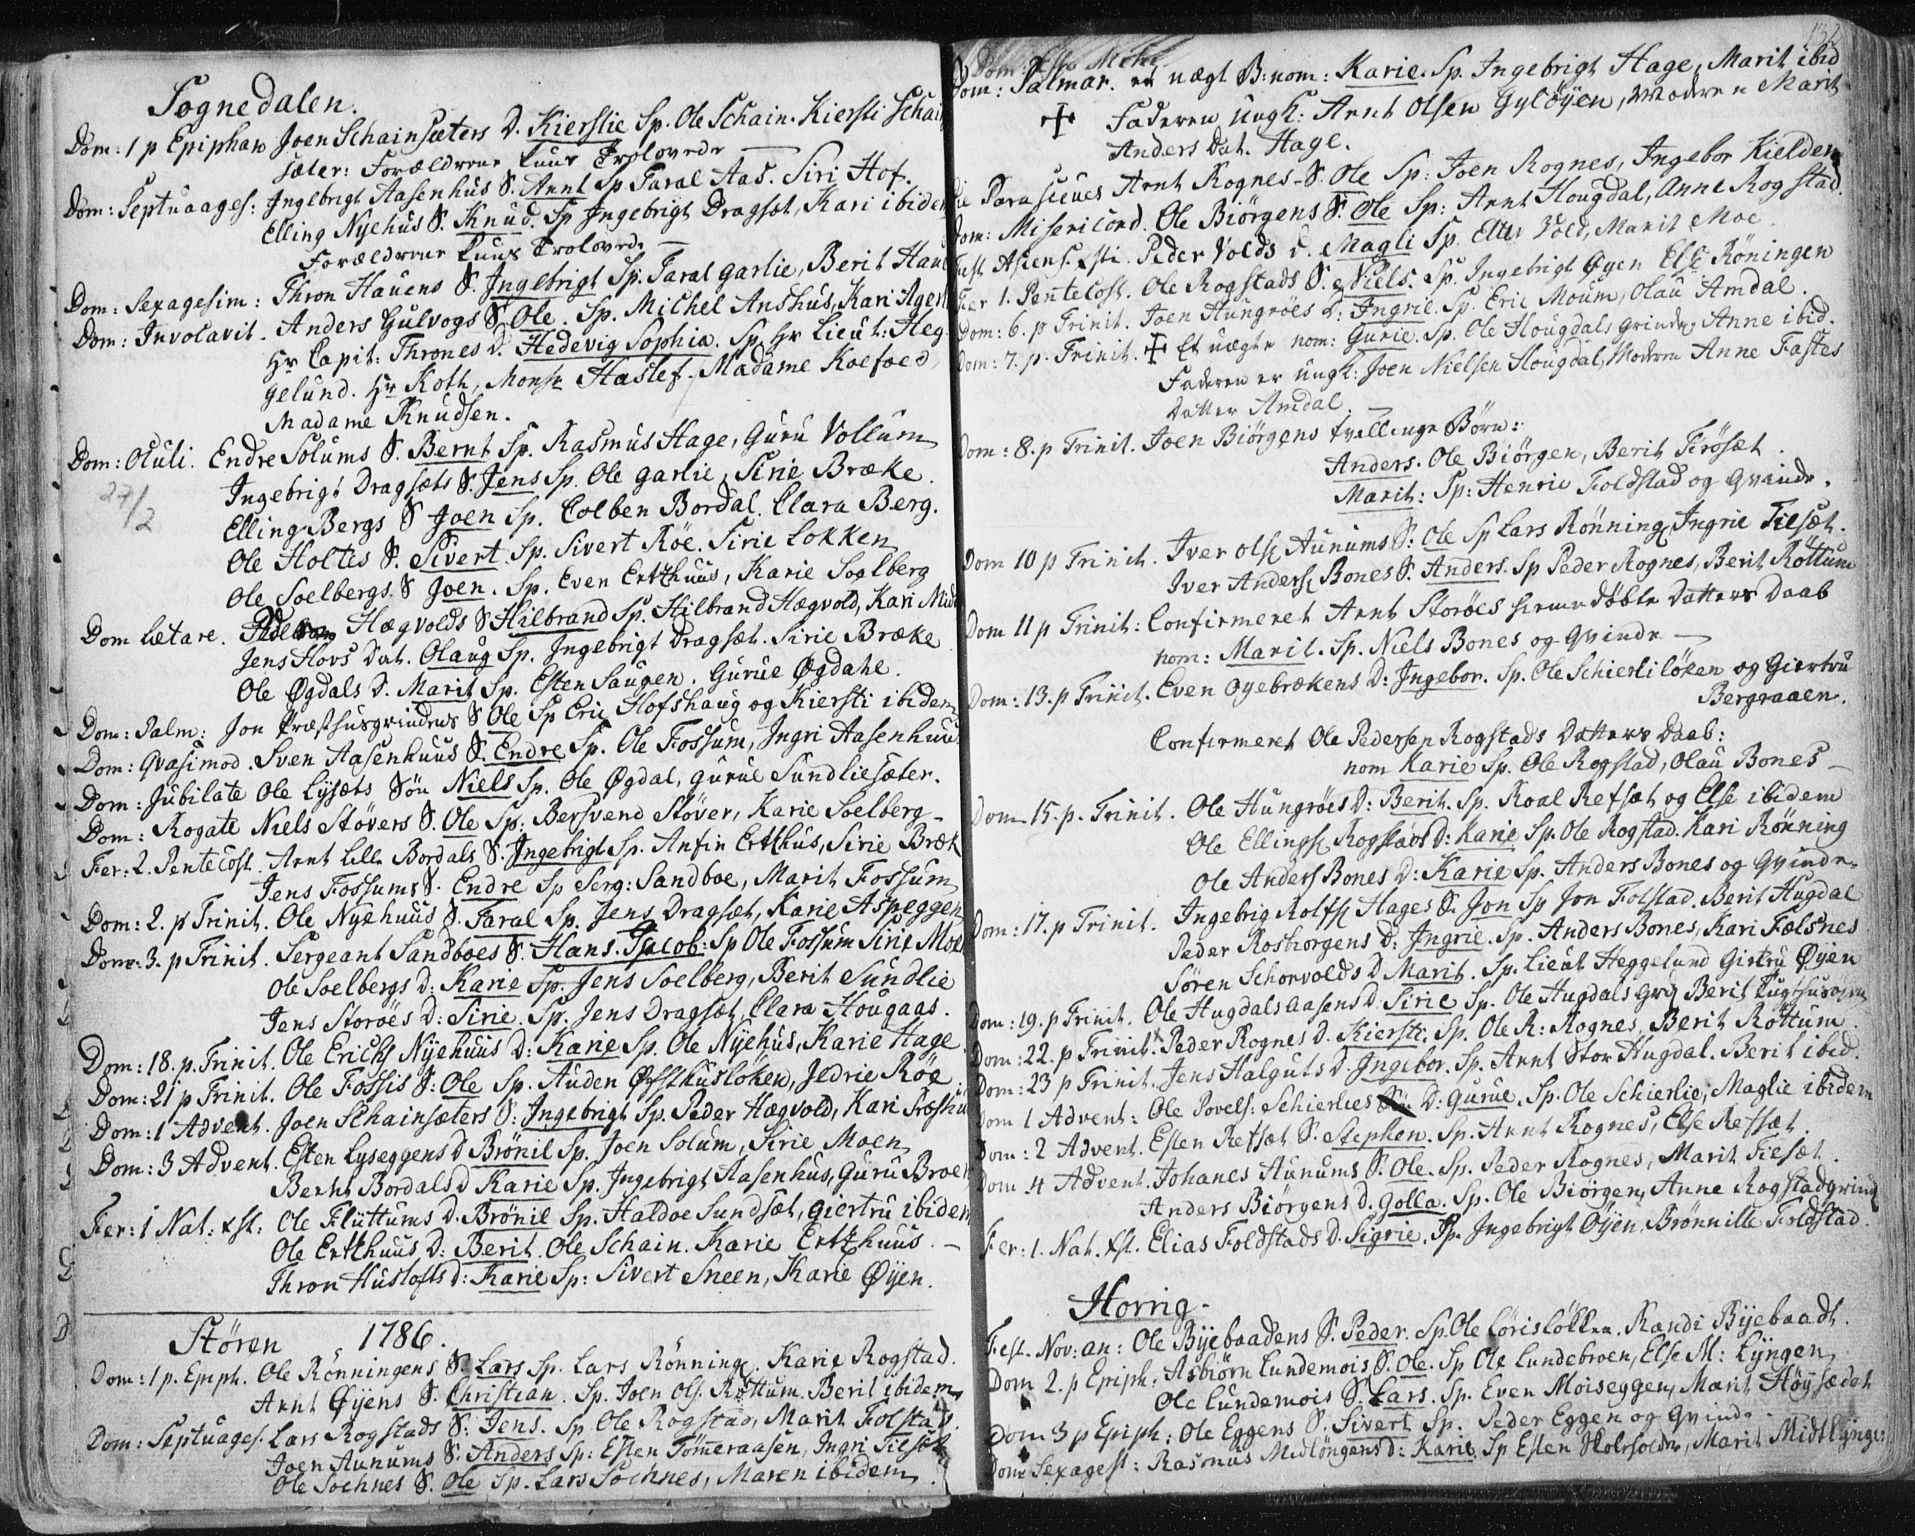 Sognedalen.
Dom: 1 p Epiphan Joen Schainsæters D. Kierstie Sp. Ole Schain. Kiersti Schain
sæter: Forældrene kuns Trolovede
Dom: Septuages: Ingebrigt Aasenhus S. Arnt Sp Taral Aas. Siri Hof.
Elling Nyehus S. Knud. Sp Ingebrigt Dragsæt, Kari ibidem
Forældrene kuns Trolovede
Dom: Sexagesim: Thron Hauens S. Ingebrigt Sp: Taral Garlie, Berit Hau
Dom: Invocavit. Anders Gulvogs S. Ole. Sp. Michel Anshus, Kari Ager
Hr Capit: Thrones D. Hedevig Sophia. Sp. Hr Lieut: Heg
gelund. Hr Koth, Monsr Haslef. Madame Koefoed,
Madame Knudsen.
Dom: Oculi. Endre Solums S. Bernt Sp. Rasmus Hage, Guru Vollum
27/2
Ingebrigt Dragsæts S. Jens Sp. Ole Garlie, Sirie Bræke.
Elling Bergs S Joen Sp. Colben Bordal. Clara Berg.
Ole Holtes S. Sivert Sp. Sivert Röe. Sirie Lokken
Ole Soelbergs S Joen. Sp. Even Ertzhuus, Karie Soelberg
Dom Lætare. Hægvolds S Hilbrand Sp. Hilbrand Hægvold, Kari
Jens Hovs Dat. Olaug Sp. Ingebrigt Dragsæt. Sirie Bræke
Ole Øgdals D. Marit Sp. Esten Saugen. Gurue Øgdahl.
Dom: Palm: Jon Præsthusgrindens S Ole Sp Eric Hofshaug og Kiersti ibidem
Dom: Qvasimod. Sven Aasenhuus S. Endre Sp. Ole Fossum, Ingri Aasenhuus
Dom: Jubilate Ole Lysæts Sön Niels Sp. Ole Øgdal, Gurue Sundliesæter.
Dom: Rogate Niels Støvers S. Ole Sp. Bersvend Støver, Karie Soelberg
Fer: 2. Pentecost. Arnt Lille Bordals S. Ingebrigt Sp. Anfin Ertzhus, Sirie Bræk
Jens Fossums S. Endre Sp Serg: Sandboe, Marit Fossum
Dom: 2. p Trinit. Ole Nyehuus S. Taral Sp. Jens Dragsæt, Karie Aspeggen
Dom: 3. p Trinit. Sergeant Sandboes S. Hans Jacob: Sp Ole Fossum Sirie Moe
Ole Soelbergs D: Karie Sp. Jens Soelberg, Berit Sundlie
Jens Storöes D: Sirie. Sp. Jens Dragsæt, Clara Hougaas.
Dom: 18. p. Trinit. Ole Erichs Nyehuus D: Karie Sp. Ole Nyehus, Karie Hage
Dom: 21 p Trinit. Ole Fossis S: Ole Sp. Auden Øfsthuslöken, Jedrie Röe
Dom: 1 Advent. Joen Schainsæters S: Ingebrigt Sp. Peder Hægvold, Kari Præsthu
Dom: 3 Advent. Esten Lyseggens D Brönil Sp. Joen Solum, Sirie Moen
Bernt Bordals D Karie Sp. Ingebrigt Aasenhus, Guru Broen
Fer: 1 Nat: Xst: Ole Fluttums D. Brönil Sp. Haldoe Sundsæt, Giertru ibidem
Ole Ertzhuus D: Berit. Ole Schain. Karie Ertzhuus.
Thron Huslofts D: Karie Sp: Sivert Sneen, Karie Øyen.
Stören 1786.
Dom: 1 p. Epiph. Ole Rönningens S. Lars Sp. Lars Rönning. Karie Rogstad.
Arnt Øyens S. Christian. Sp. Joen Ols. Röttum. Berit ibidem
Dom: Septuages. Lars Rogstads S: Jens. Sp Ole Rogstad, Marit Folstad.
Joen Aunums S. Anders Sp: Esten Tömeraasen, Ingri Tilset
Ole Sochnes S. Ole Sp. Lars Sochnes, Maren ibidem.
132
Dom: Palmar. et uægt B: nom: Karie. Sp. Ingebrigt Hage, Marit ibid
Faderen ungk: Arnt Olsen Gylöyen, Moderen Marit
Anders Dat. Hage.
Die Parasceues Arnt Rognes S. Ole Sp: Joen Rognes, Ingebor Kielden
Dom: Misericord. Ole Biörgens S. Ole Sp: Arnt Hougdal, Anne Rogstad.
Fest Ascens. Xsti. Peder Volds D. Magli Sp. Vold, Marit Moe
Fer 1. Pentecost. Ole Rogstads S. Niels. Sp. Ingebrigt Øyen Else Röningen
Dom: 6. p Trinit. Joen Hungröes D: Ingrie. Sp. Eric Moum, Olau Amdal.
Dom: 7. p. Trinit. Et uægte nom: Gurie. Sp. Ole Hougdals Grinden, Anne ibid.
Faderen er ungk: Joen Nielsen Hougdal, Moderen Anne Fastes
Datter Amdal.
Dom: 8. p Trinit. Joen Biörgens tvillinge Børn:
Anders. Ole Biörgen, Berit Frösæt.
Marit: Sp: Henric Foldstad og Qvinde.
Dom 10 p Trinit. Iver Ols. Aunums S: Ole Sp Lars Rönning, Ingrie Tilsæt.
Iver Anders. Bones S. Anders. Sp Peder Rognes, Berit Röttum
Dom 11 p Trinit: Confirmeret Arnt Storöes hiemedöbte Datters Daab
nom: Marit. Sp. Niels Bones og Qvinde
Dom: 13. p Trinit. Even Oyebrækens D: Ingebor. Sp. Ole Schierliløken og Giertru
Berggaaen.
Confirmeret Ole Pedersen Rogstads Datters Daab:
nom Karie Sp. Ole Rogstad, Olau Bones
Dom 15. p. Trinit. Ole Hungröes D: Berit. Sp. Roal Refsæt og Else ibidem
Ole Ellings. Rogstads D: Karie Sp. Ole Rogstad. Kari Rønning
Ole Anders Bones D: Karie Sp. Anders Bones og Qvinde
Dom: 17. p Trinit. Ingebrig Rolfs. Hages S. Jon Sp Jon Folstad. Berit Hugdal
Peder Roskorgens D: Ingrie. Sp. Anders Bones, Kari Fælsnes
Søren Schorvolds D. Marit. Sp. Lieut Heggelund Girtru Øyen
Dom: 19. p Trinit. Ole Hugdals aasens D: Sirie Sp. Ole Hugdals Berit
Dom: 22. p Trinit. Peder Rognes D. Kiersti. Sp. Ole R: Rognes, Berit Röttum
Dom: 23 p Trinit. Jens Halguts D: Ingebor. Sp. Arnt Stor Hugdal. Berit ibid.
Dom 1 Advent: Ole Povels: Schierlies D: Gurue. Sp. Ole Schierlie, Maglie ibidem
Dom: 2 Advent. Esten Refsæt S. Stephen. Sp. Arnt Rognes, Else Refsæt.
Dom. 4 Advent. Johanes Aunums S. Ole. Sp. Peder Rognes, Marit Tilsæt.
Anders Biörgens D. Golla. Sp. Ole Biörgen, Anne Rogstadgrind
Fer: 1. Nat. Xst. Elias Foldstads D. Sigrie. Sp. Ingebrigt Öyen, Brönnille Foldstad.
Horrig.
Fest. Nov: an: Ole Byebaadens S. Peder. Sp. Ole Lörisløkken. Randi Byebaadt.
Dom 2. p Epiph: Asbiörn Lundemois S. Ole. Sp Ole Lundebroen, Else M: Lyngen
Ole Lundemois S. Lars. Sp. Even Moiseggen, Marit Høysædet
Dom 3 p Epiph: Ole Eggens S. Sivert Sp. Peder Eggen og Qvinde.
Dom Sexagest: Rasmus Midlöngens D: Karie. Sp Esten, Marit Midtlynge: